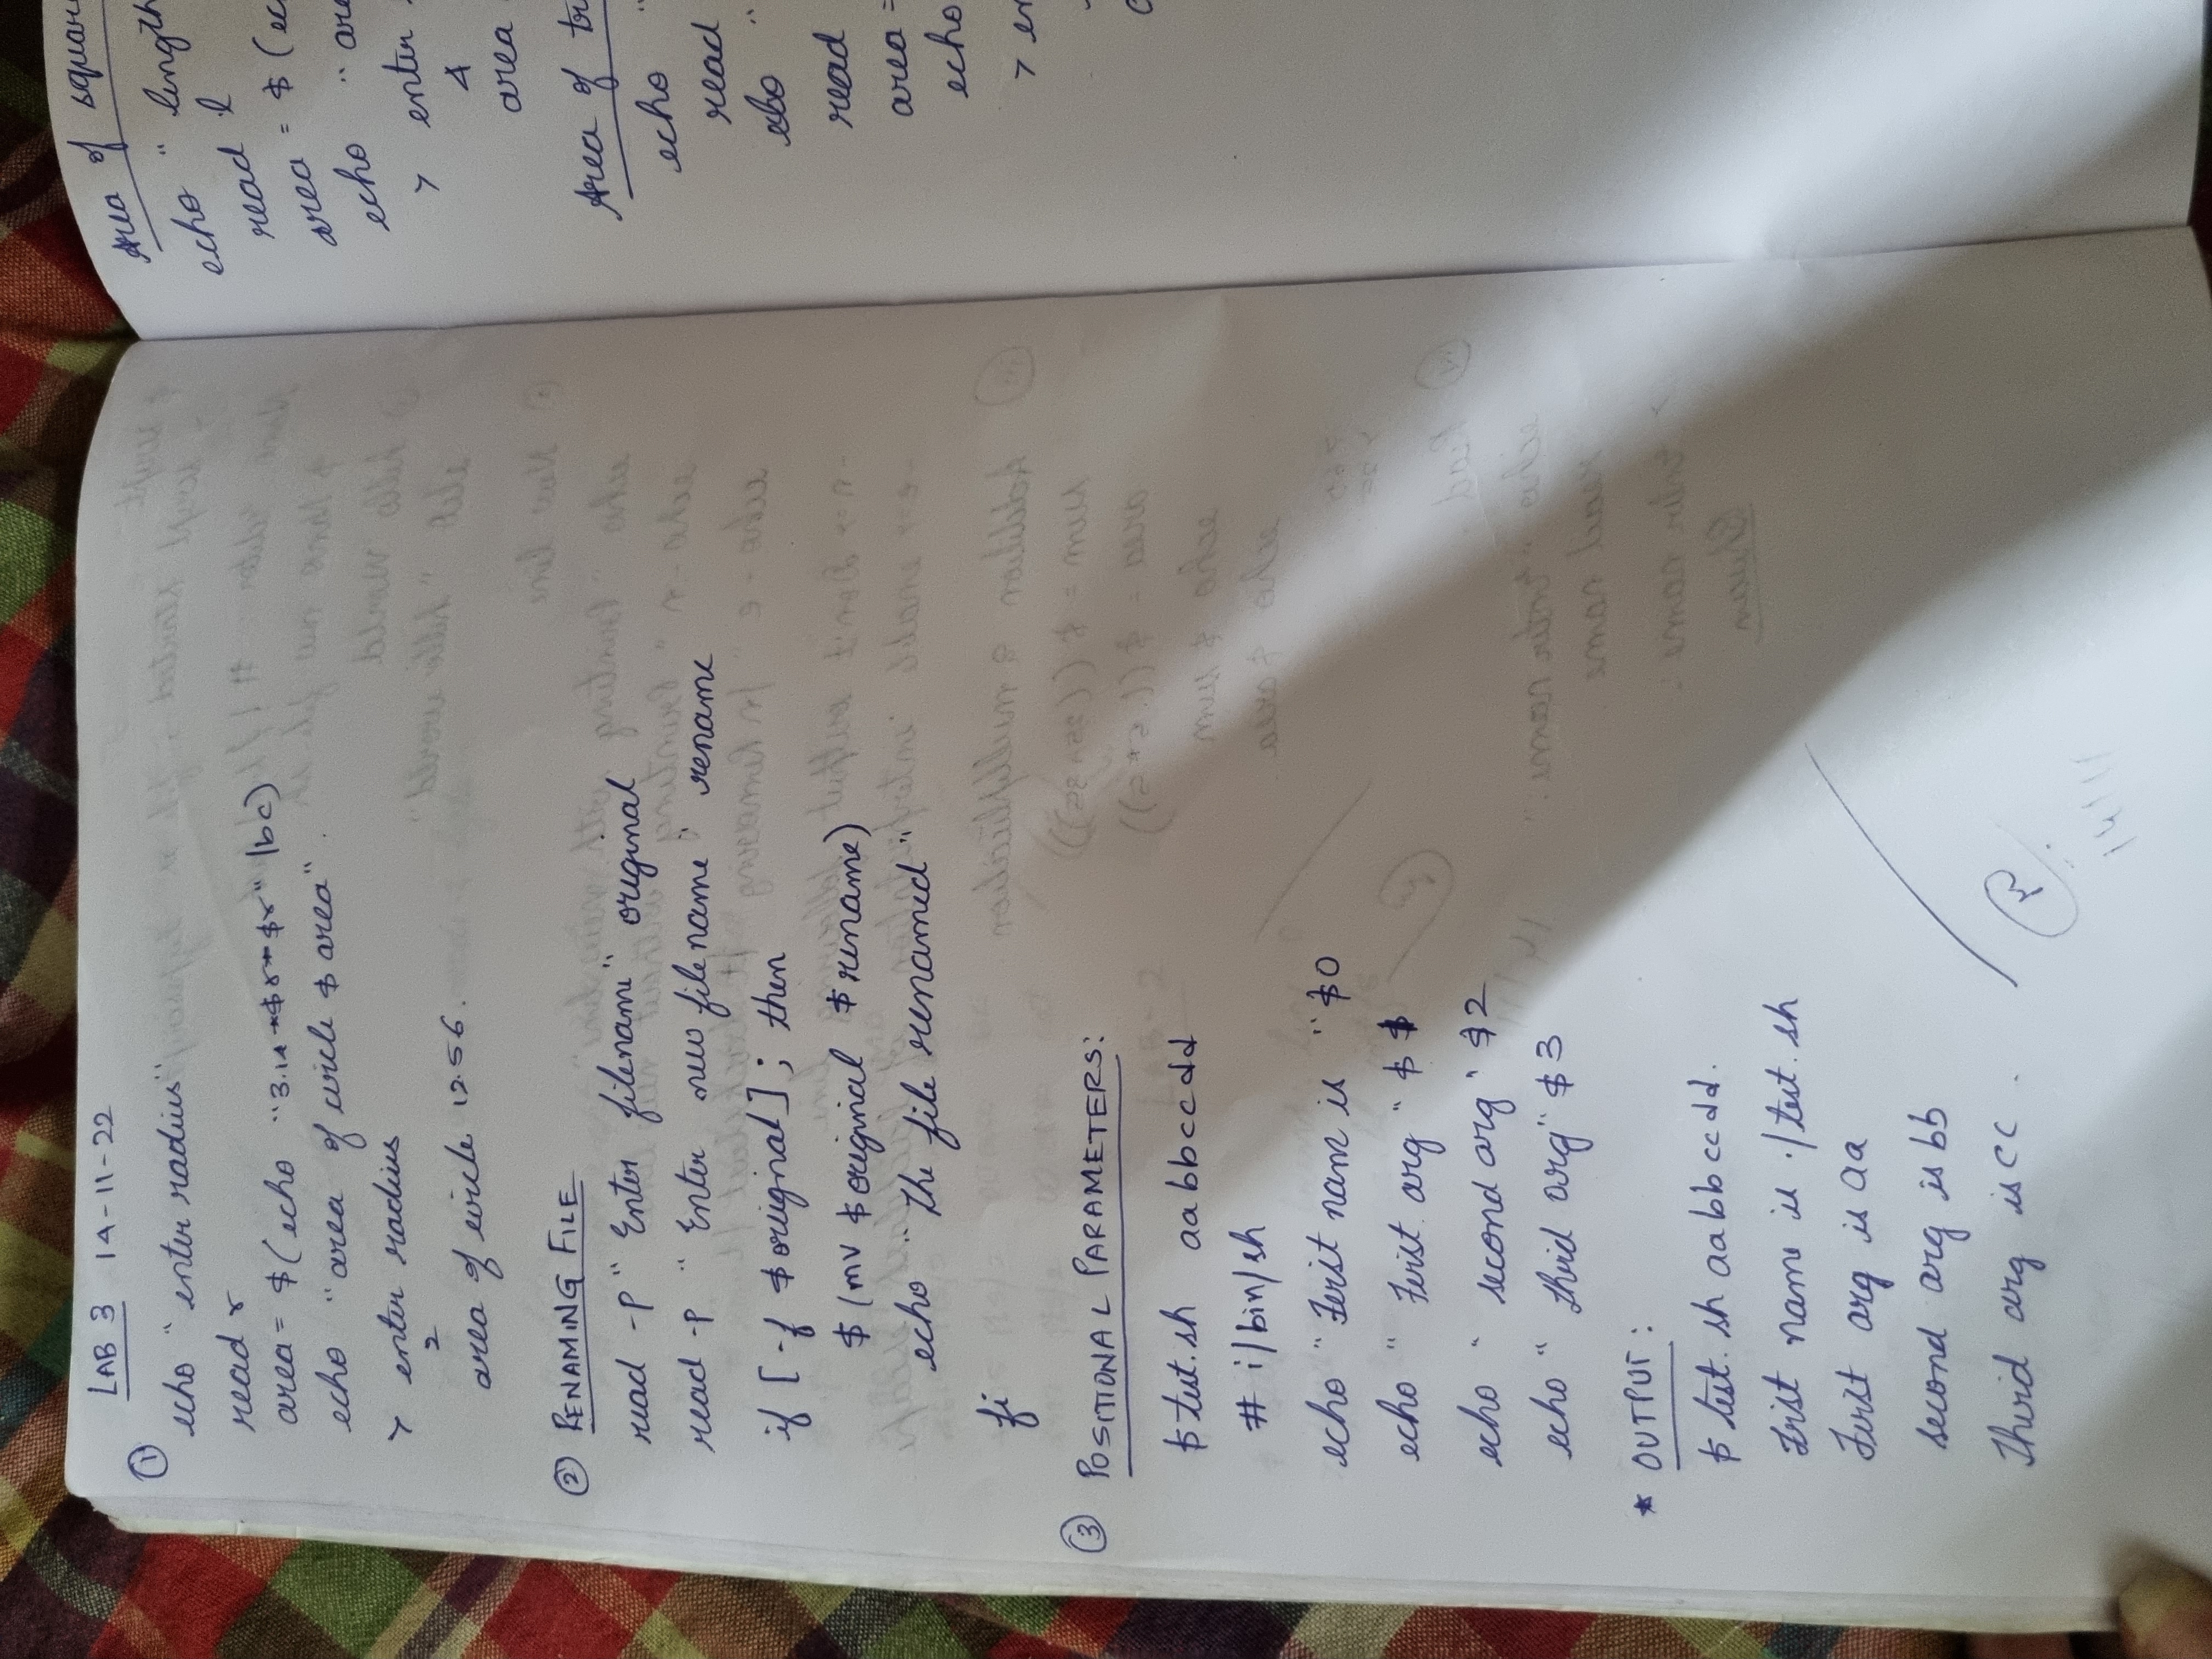 LAB 3 14-11-22
①
echo "enter radius"
read r
area= $(echo "3.14*$r*$r" |bc)
echo "area of circle $area".
> enter radius
2
area of circle 12.56.
② RENAMING FILE
read -p "Enter filename" original
read -p "Enter new filename" rename
if [-f $original]; then
$(mv $original $rename)
echo "The file renamed"
fi
③ POSITIONAL PARAMETERS:
$ test.sh aa bb cc dd
# i/bin/sh
echo "First name is "$0
echo "First arg" $
echo "second arg" $2
echo "third arg" $3
* OUTPUT:
$ test.sh aa bb cc dd.
First name is ./test.sh
First arg is aa
second arg is bb
Third arg is cc.
14/11
Area of
echo "length
read l
area = $(
echo "
> enter
4
area
Area of
echo "
read
echo "
read
area =
echo
>